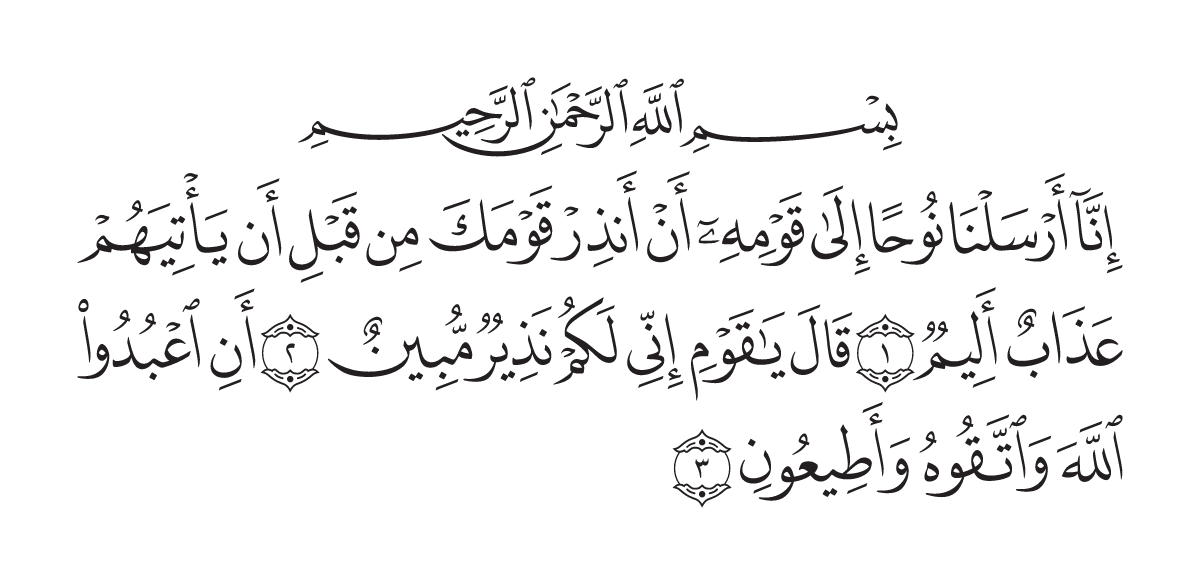 بِسْمِ ٱللَّهِ ٱلرَّحْمَٰنِ ٱلرَّحِيمِ
إِنَّآ أَرْسَلْنَا نُوحًا إِلَىٰ قَوْمِهِۦٓ أَنْ أَنذِرْ قَوْمَكَ مِن قَبْلِ أَن يَأْتِيَهُمْ
عَذَابٌ أَلِيمٌ ١ قَالَ يَٰقَوْمِ إِنِّي لَكُمْ نَذِيرٌ مُّبِينٌ ٢ أَنِ ٱعْبُدُوا۟
ٱللَّهَ وَٱتَّقُوهُ وَأَطِيعُونِ ٣